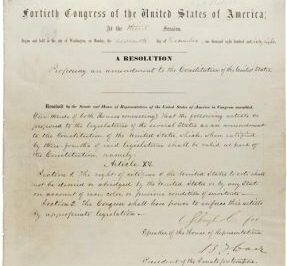 Fortieth Congress of the United States of America;
At the third Session,
Begun and held at the city of Washington, on Monday, the seventh day of December, one thousand eight hundred and sixty-eight.
A RESOLUTION
Proposing an amendment to the Constitution of the United States.
Resolved by the Senate and House of Representatives of the United States of America in Congress assembled,
(two thirds of both Houses concurring) that the following article be
proposed to the legislatures of the several States as an amendment
to the Constitution of the United States which, when ratified
by three fourths of said legislatures shall be valid as part of
the Constitution, namely:
Article XV.
Section 1. The right of citizens of the United States to vote shall
not be denied or abridged by the United States or by any State
on account of race, color, or previous condition of servitude.
Section 2. The Congress shall have power to enforce this article
by appropriate legislation.
Speaker of the House of Representatives.
President of the Senate pro tempore.